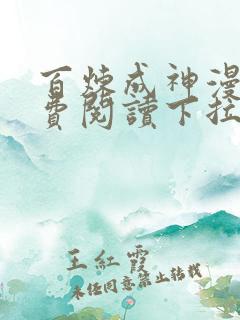 百炼成神漫
费阅读下拉
王红霞
未经同意禁止转载